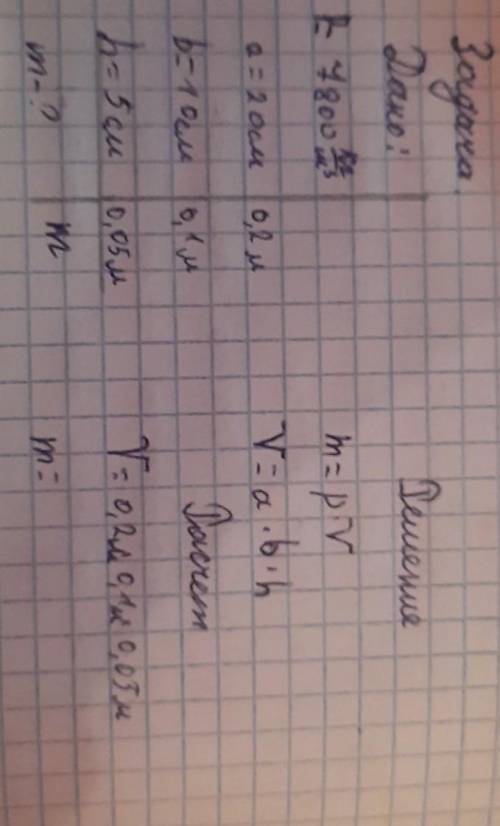 Задача
Дано:
ρ= 7800 кг/м³
a = 20 см 0,2 м
b = 10 см 0,1 м
h = 5 см 0,05 м
m - ? m
Решение
m = ρ · V
V = a · b · h
Расчет
V = 0,2м 0,1м 0,05 м
m =